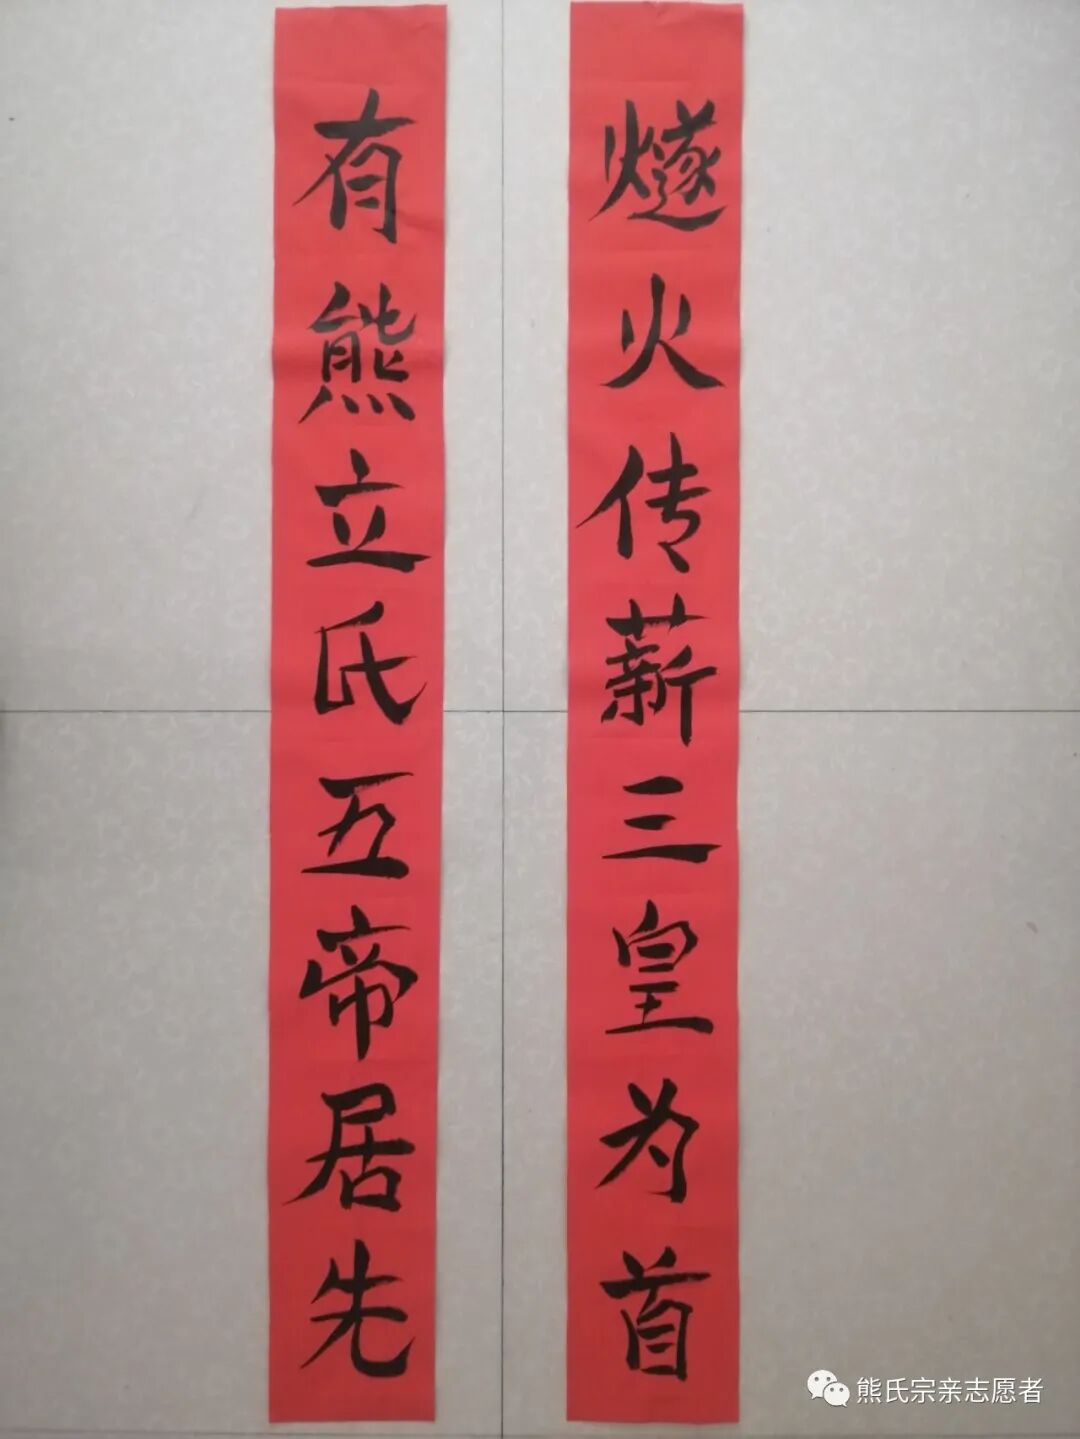 燧火传薪三皇为首
有熊立氏五帝居先
熊氏宗亲志愿者